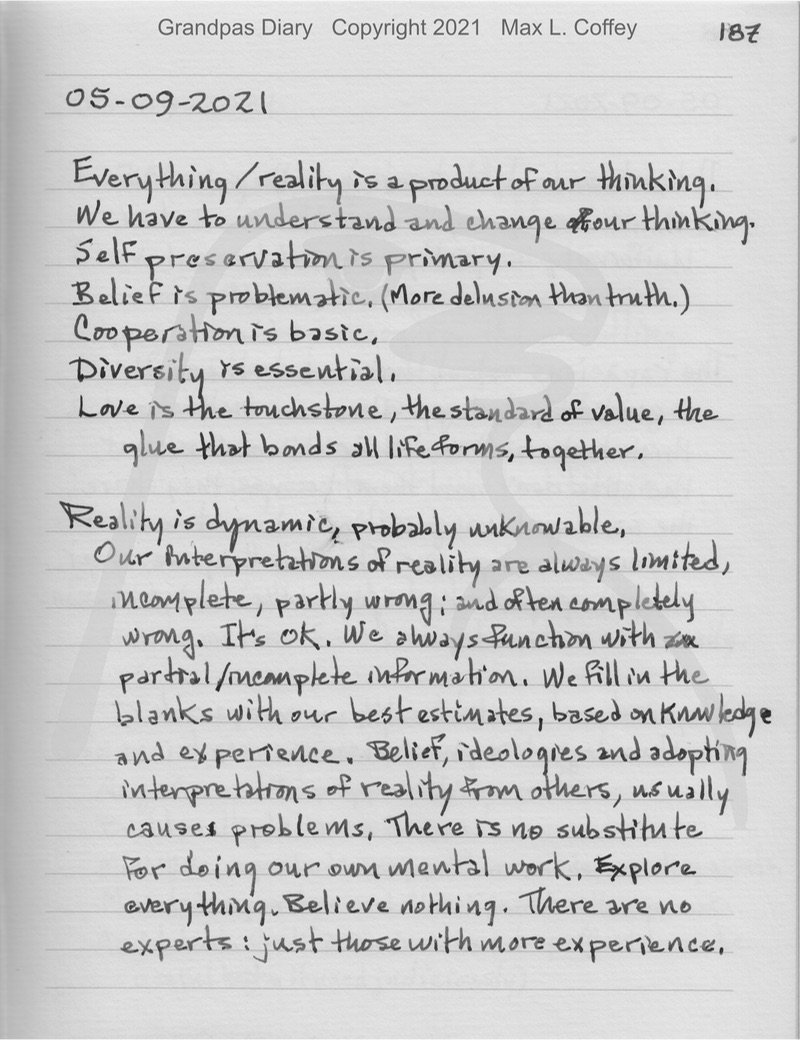 Grandpas Diary Copyright 2021 Max L. Coffey
187
05-09-2021
Everything/reality is a product of our thinking.
We have to understand and change our thinking.
Self preservation is primary.
Belief is problematic. (More delusion than truth.)
Cooperation is basic.
Diversity is essential.
Love is the touchstone, the standard of value, the
glue that bonds all life forms, together.
Reality is dynamic, probably unknowable,
Our interpretations of reality are always limited,
incomplete, partly wrong; and often completely
wrong. It's OK. We always function with
partial/incomplete information. We fill in the
blanks with our best estimates, based on knowledge
and experience. Belief, ideologies and adopting
interpretations of reality from others, usually
causes problems. There is no substitute
for doing our own mental work. Explore
everything. Believe nothing. There are no
experts: just those with more experience.